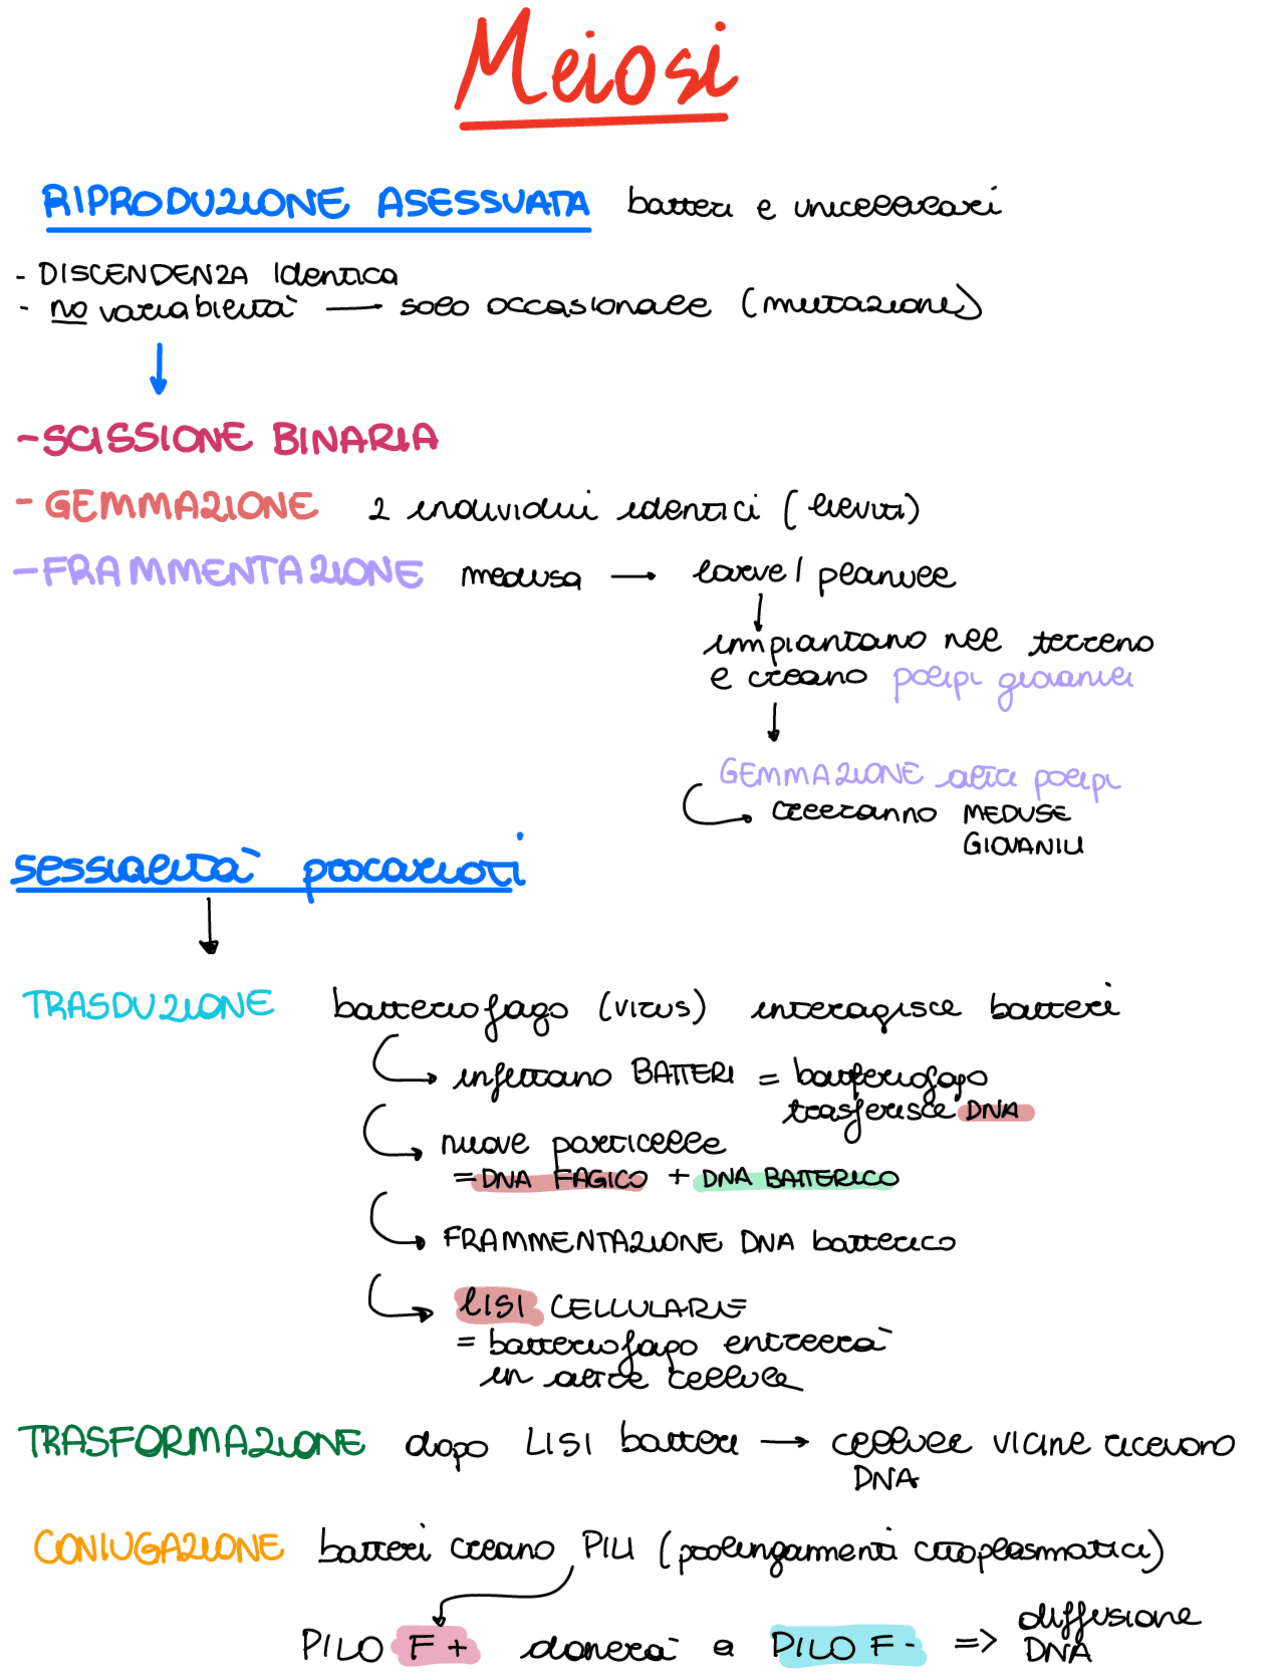 Meiosi
RIPRODUZIONE ASESSUATA batteri e unicellulari
- DISCENDENZA Identica
- no variabilità → solo occasionale (mutazione)
- SCISSIONE BINARIA
- GEMMAZIONE 2 individui identici (lieviti)
- FRAMMENTAZIONE medusa → larve / planule
impiantano nel terreno
e creano polipi giovanili
GEMMAZIONE altri polipi
creeranno MEDUSE
GIOVANILI
sessualità procarioti
TRASDUZIONE batteriofago (virus) interagisce batteri
infettano BATTERI = batteriofago
trasferisce DNA
nuove particelle
= DNA FAGICO + DNA BATTERICO
FRAMMENTAZIONE DNA batterico
LISI CELLULARE
= batteriofago entrerà
in altre cellule
TRASFORMAZIONE dopo LISI batteri → cellule vicine ricevono
DNA
CONIUGAZIONE batteri creano PILI (prolungamenti citoplasmatici)
PILO F+ donerà a PILO F- => diffusione
DNA